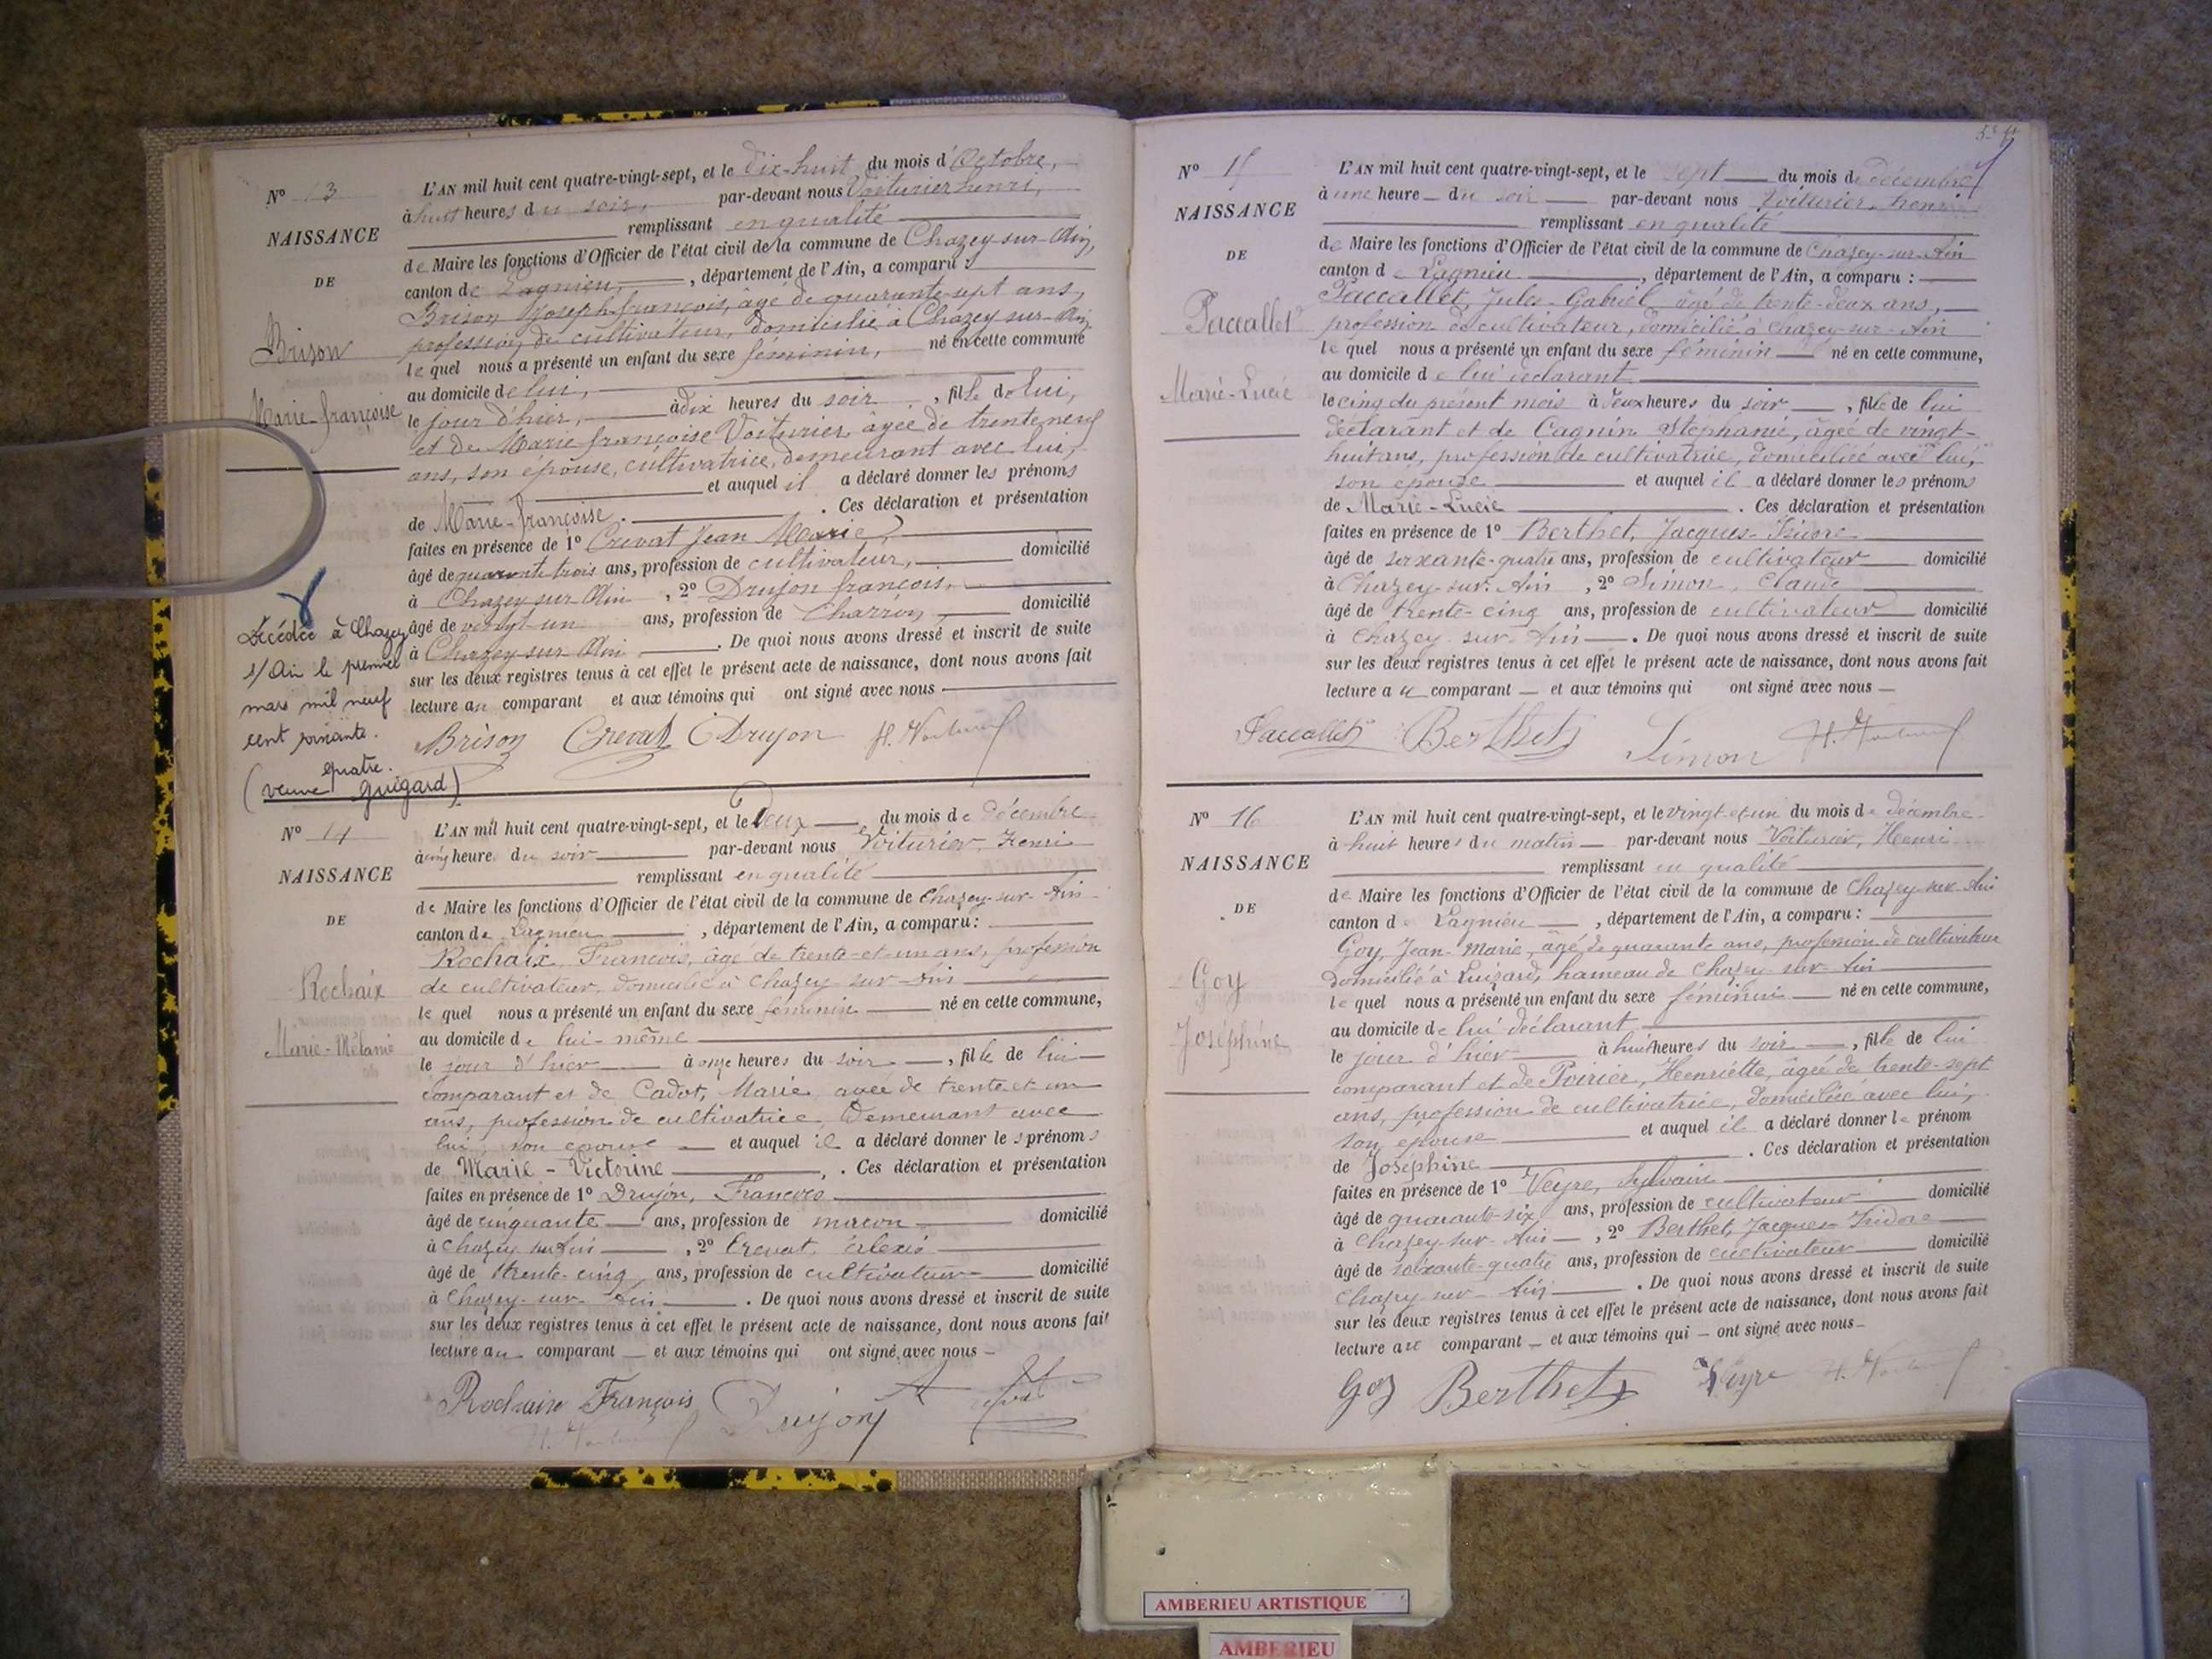 N° 13
NAISSANCE
DE
Brison
Marie-françoise
L'AN mil huit cent quatre-vingt-sept, et le dix-huit du mois d'Octobre,
à huit heures du soir, par-devant nous Voiturier henri,
remplissant en qualité
de Maire les fonctions d'Officier de l'état civil de la commune de Chazey-sur-Ain,
canton de Lagnieu, département de l'Ain, a comparu :
Brison Joseph françois, âgé de quarante-sept ans,
profession de cultivateur, domicilié à Chazey-sur-Ain,
lequel nous a présenté un enfant du sexe féminin, né en cette commune
au domicile de lui,
le jour d'hier, à dix heures du soir, fille de lui,
et de Marie françoise Voiturier, âgée de trente neuf
ans, son épouse, cultivatrice, demeurant avec lui,
et auquel il a déclaré donner les prénoms
de Marie-françoise. Ces déclaration et présentation
faites en présence de 1° Crevat Jean Marie,
âgé de quarante trois ans, profession de cultivateur, domicilié
à Chazey sur Ain, 2° Drujon françois,
âgé de vingt-un ans, profession de Charron, domicilié
à Chazey-sur Ain. De quoi nous avons dressé et inscrit de suite
sur les deux registres tenus à cet effet le présent acte de naissance, dont nous avons fait
lecture au comparant et aux témoins qui ont signé avec nous
Brison Crevat Drujon
Décédée à Chazey
s/Ain le premier
mars mil neuf
cent soixante.
quatre.
(veuve Guégard)
N° 14
NAISSANCE
DE
Rochaix
Marie-Mélanie
L'AN mil huit cent quatre-vingt-sept, et le deux du mois de décembre
à cinq heure du soir par-devant nous Voiturier Henri
remplissant en qualité
de Maire les fonctions d'Officier de l'état civil de la commune de Chazey-sur-Ain
canton de Lagnieu, département de l'Ain, a comparu :
Rochaix, François, âgé de trente-et-un ans, profession
de cultivateur, domicilié à Chazey-sur-Ain
lequel nous a présenté un enfant du sexe féminin né en cette commune,
au domicile de lui-même
le jour d'hier à onze heures du soir, fille de lui
comparant et de Cadot, Marie, agée de trente et un
ans, profession de cultivatrice, demeurant avec
lui, son épouse et auquel il a déclaré donner les prénoms
de Marie-Victorine. Ces déclaration et présentation
faites en présence de 1° Drujon, François
âgé de cinquante ans, profession de maçon domicilié
à Chazey sur Ain, 2° Crevat, Alexis
âgé de trente-cinq ans, profession de cultivateur domicilié
à Chazey-sur-Ain. De quoi nous avons dressé et inscrit de suite
sur les deux registres tenus à cet effet le présent acte de naissance, dont nous avons fait
lecture au comparant et aux témoins qui ont signé avec nous
Rochaix François Drujon
N° 15
NAISSANCE
DE
Paccallet
Marie-Lucie
L'AN mil huit cent quatre-vingt-sept, et le sept du mois de décembre
à une heure du soir par-devant nous Voiturier henri
remplissant en qualité
de Maire les fonctions d'Officier de l'état civil de la commune de Chazey-sur-Ain
canton de Lagnieu, département de l'Ain, a comparu :
Paccallet, Jules-Gabriel, âgé de trente-deux ans,
profession de cultivateur, domicilié à Chazey-sur-Ain
lequel nous a présenté un enfant du sexe féminin né en cette commune,
au domicile de lui déclarant
le cinq du présent mois à deux heures du soir, fille de lui
déclarant et de Cagnin Stéphanie, âgée de vingt-
huit ans, profession de cultivatrice, domiciliée avec lui,
son épouse et auquel il a déclaré donner les prénoms
de Marie-Lucie. Ces déclaration et présentation
faites en présence de 1° Berthet, Jacques-Isidore
âgé de soixante-quatre ans, profession de cultivateur domicilié
à Chazey-sur-Ain, 2° Simon, Claude
âgé de trente-cinq ans, profession de cultivateur domicilié
à Chazey-sur-Ain. De quoi nous avons dressé et inscrit de suite
sur les deux registres tenus à cet effet le présent acte de naissance, dont nous avons fait
lecture au comparant et aux témoins qui ont signé avec nous
Paccallet Berthet Simon
N° 16
NAISSANCE
DE
Goy
Joséphine
L'AN mil huit cent quatre-vingt-sept, et le vingt-et-un du mois de décembre
à huit heures du matin par-devant nous Voiturier, Henri
remplissant en qualité
de Maire les fonctions d'Officier de l'état civil de la commune de Chazey-sur-Ain
canton de Lagnieu, département de l'Ain, a comparu :
Goy, Jean-Marie, âgé de quarante ans, profession de cultivateur
domicilié à Luizard, hameau de Chazey-sur-Ain
lequel nous a présenté un enfant du sexe féminin né en cette commune,
au domicile de lui déclarant
le jour d'hier à huit heures du soir, fille de lui
comparant et de Poirier, Henriette, âgée de trente-sept
ans, profession de cultivatrice, domiciliée avec lui,
son épouse et auquel il a déclaré donner le prénom
de Joséphine. Ces déclaration et présentation
faites en présence de 1° Veyre, Sylvain
âgé de quarante-six ans, profession de cultivateur domicilié
à Chazey-sur-Ain, 2° Berthet, Jacques-Isidore
âgé de soixante-quatre ans, profession de cultivateur domicilié
Chazey-sur-Ain. De quoi nous avons dressé et inscrit de suite
sur les deux registres tenus à cet effet le présent acte de naissance, dont nous avons fait
lecture au comparant et aux témoins qui ont signé avec nous
Goy Berthet Veyre
AMBERIEU ARTISTIQUE
AMBERIEU